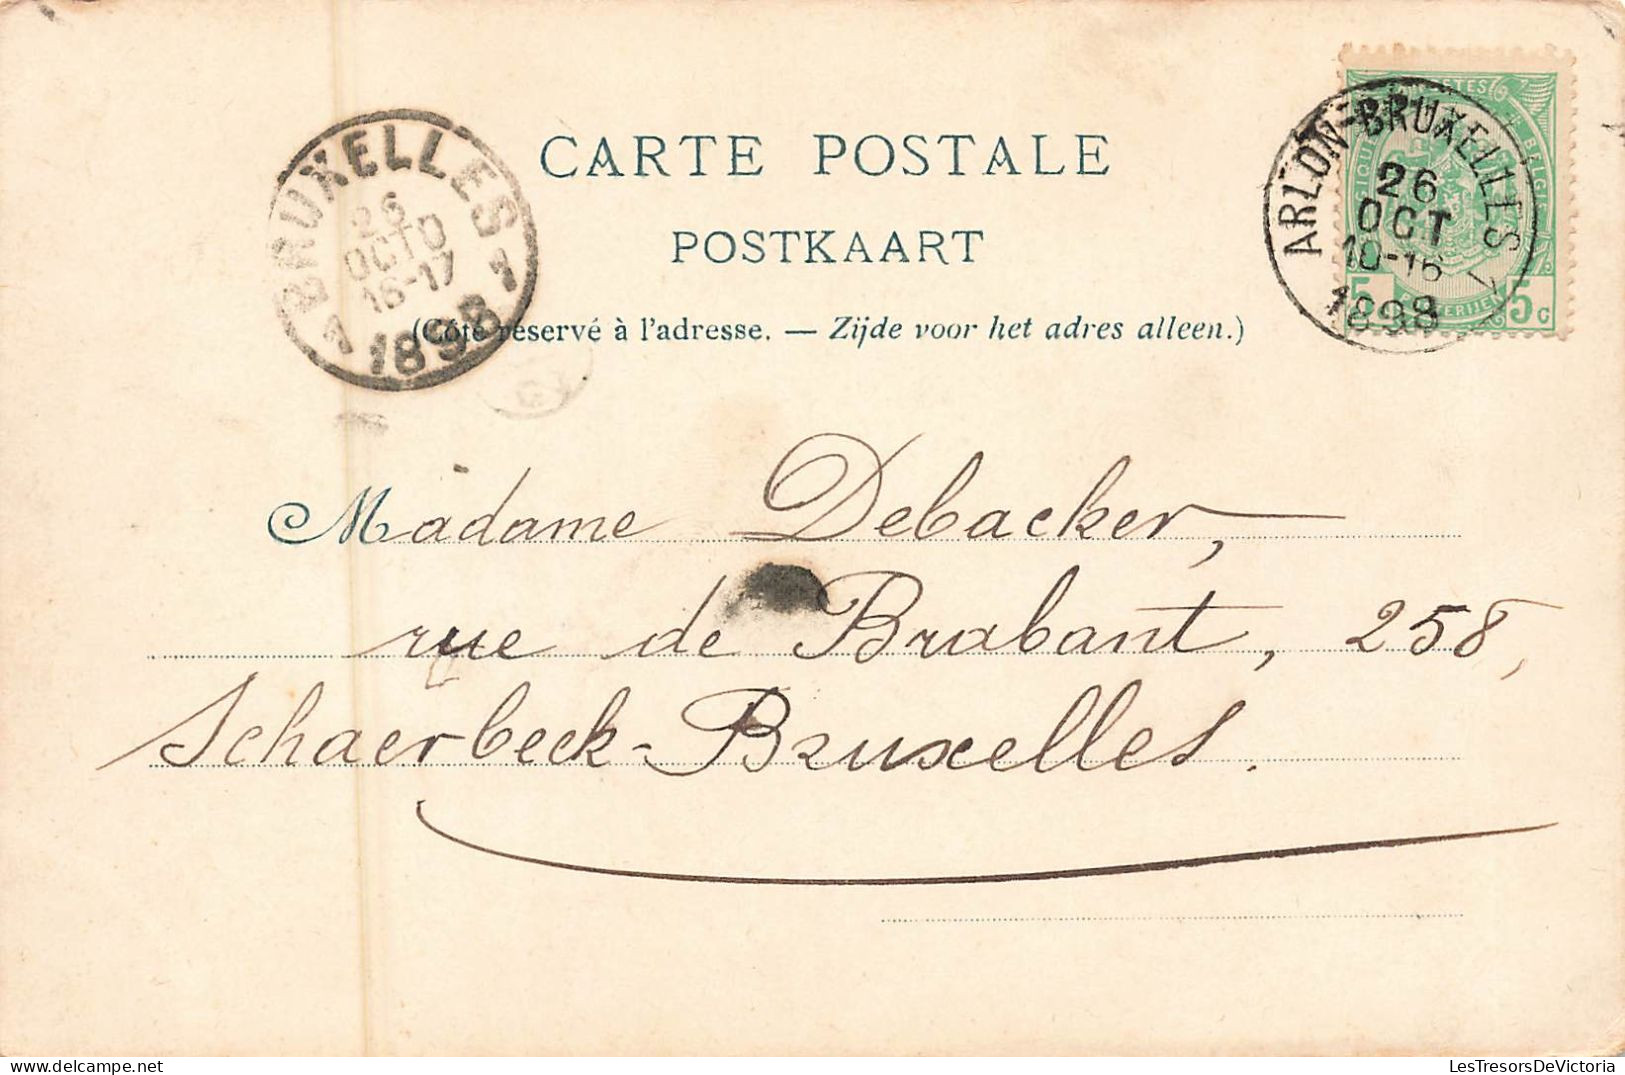 CARTE POSTALE
POSTKAART
(Côté réservé à l'adresse. — Zijde voor het adres alleen.)
BRUXELLES 1
26
OCTO
16-17
1898
ARLON-BRUXELLES
26
OCT
10-16
1898
5 5c
Madame Debacker,
rue de Brabant, 258,
Schaerbeck-Bruxelles.
delcampe.net
LesTresorsDeVictoria